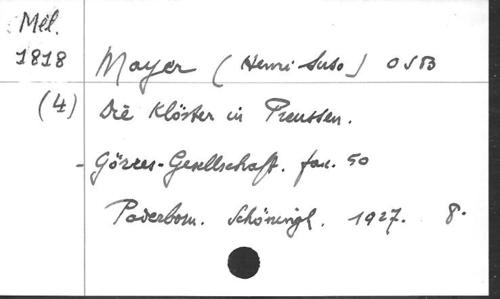 Mél.
1818
(4)
Mayer (Henri Suso) OSB
Die Klöster in Preussen.
- Görres-Gesellschaft. fasc. 50
Paderborn. Schöningh. 1927. 8.